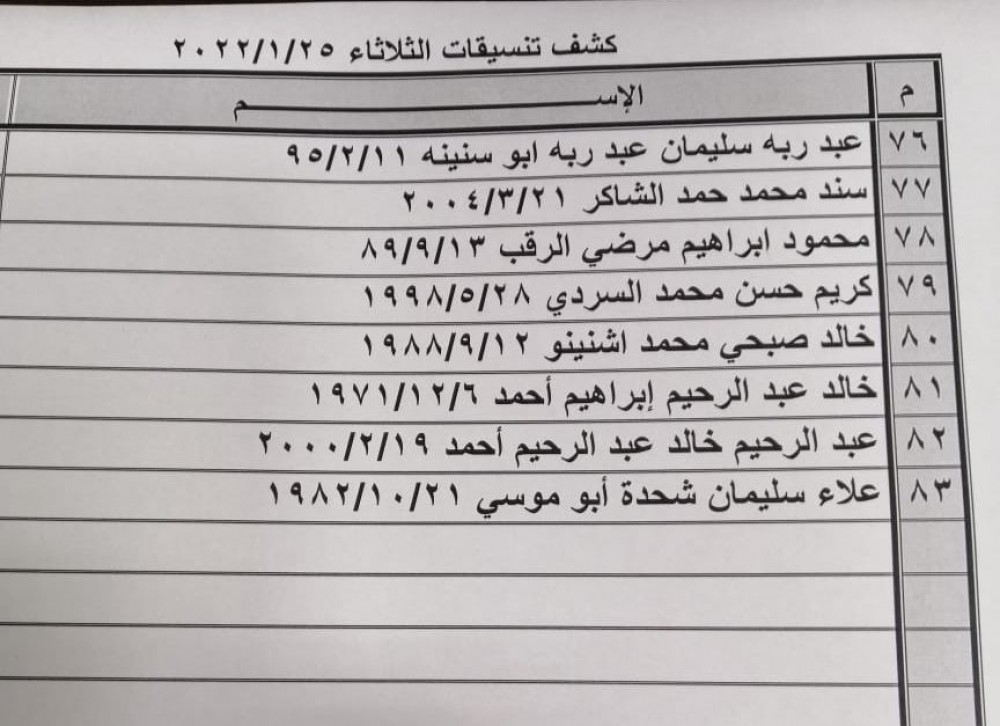 كشف تنسيقات الثلاثاء ٢٠٢٢/١/٢٥
م الإســــــــــــــــــــم
٧٦ عبد ربه سليمان عبد ربه ابو سنينه ٩٥/٢/١١
٧٧ سند محمد حمد الشاكر ٢٠٠٤/٣/٢١
٧٨ محمود ابراهيم مرضي الرقب ٨٩/٩/١٣
٧٩ كريم حسن محمد السردي ١٩٩٨/٥/٢٨
٨٠ خالد صبحي محمد اشنينو ١٩٨٨/٩/١٢
٨١ خالد عبد الرحيم إبراهيم أحمد ١٩٧١/١٢/٦
٨٢ عبد الرحيم خالد عبد الرحيم أحمد ٢٠٠٠/٢/١٩
٨٣ علاء سليمان شحدة أبو موسي ١٩٨٢/١٠/٢١